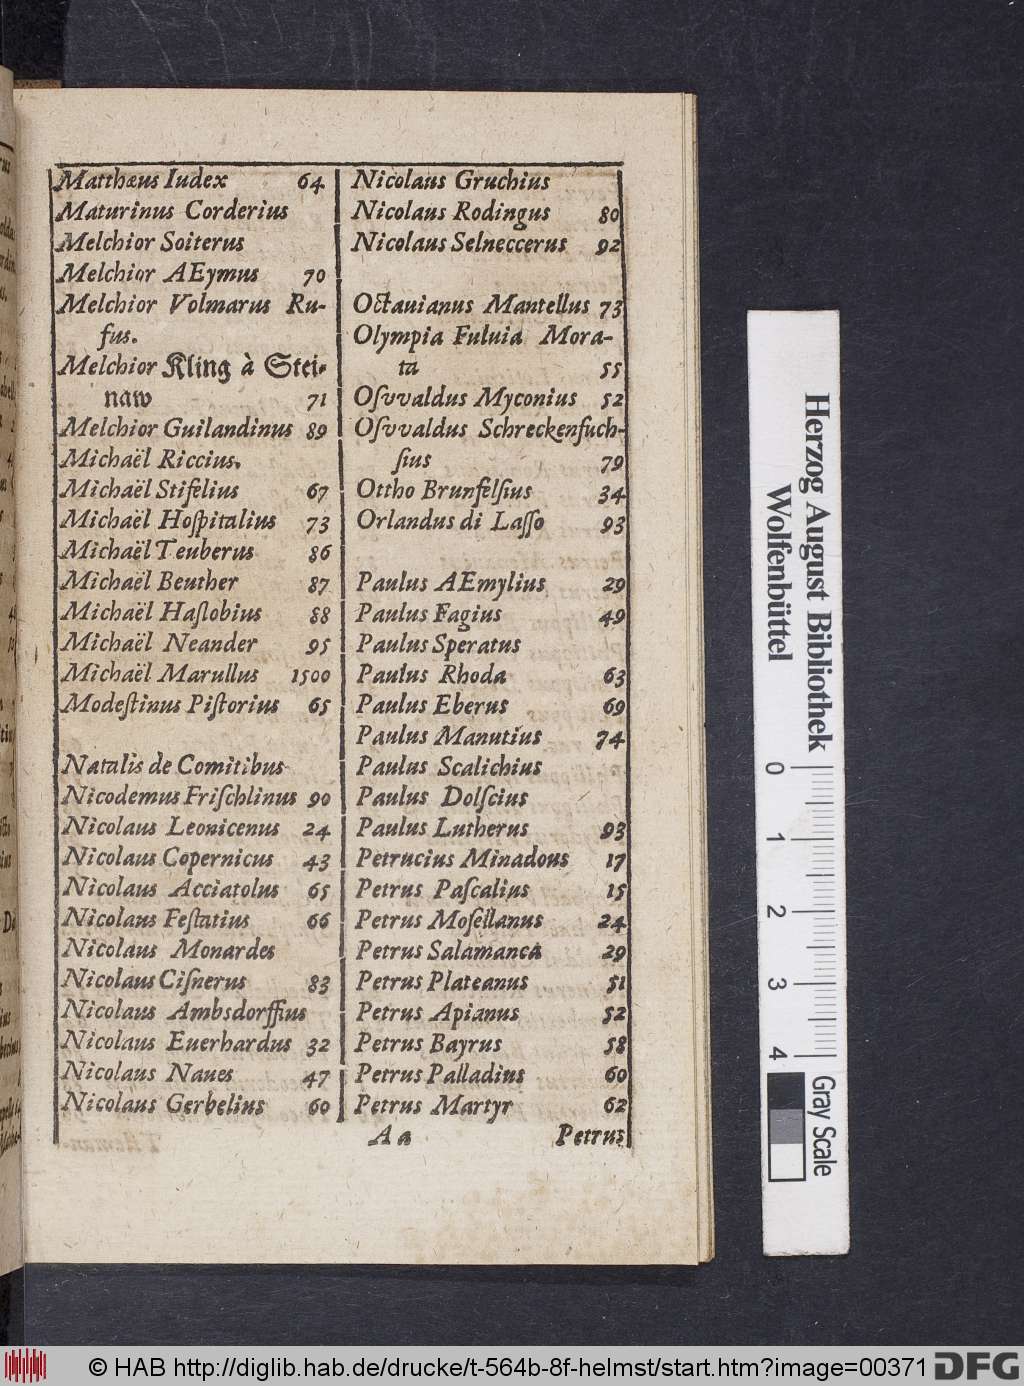 Matthæus Iudex 64
Maturinus Corderius
Melchior Soiterus
Melchior AEymus 70
Melchior Volmarus Ru-
fus.
Melchior Kling à Stei-
naw 71
Melchior Guilandinus 89
Michaël Riccius.
Michaël Stifelius 67
Michaël Hoſpitalius 73
Michaël Teuberus 86
Michaël Beuther 87
Michaël Haſlobius 88
Michaël Neander 95
Michaël Marullus 1500
Modeſtinus Piſtorius 65
Natalis de Comitibus
Nicodemus Friſchlinus 90
Nicolaus Leonicenus 24
Nicolaus Copernicus 43
Nicolaus Acciatolus 65
Nicolaus Feſtatius 66
Nicolaus Monardes
Nicolaus Ciſnerus 83
Nicolaus Ambsdorffius
Nicolaus Euerhardus 32
Nicolaus Naues 47
Nicolaus Gerbelius 60
Nicolaus Gruchius
Nicolaus Rodingus 80
Nicolaus Selneccerus 92
Octauianus Mantellus 73
Olympia Fuluia Mora-
ta 55
Oſvvaldus Myconius 52
Oſvvaldus Schreckenfuch-
ſius 79
Ottho Brunfelſius 34
Orlandus di Laſſo 93
Paulus AEmylius 29
Paulus Fagius 49
Paulus Speratus
Paulus Rhoda 63
Paulus Eberus 69
Paulus Manutius 74
Paulus Scalichius
Paulus Dolſcius
Paulus Lutherus 93
Petrucius Minadous 17
Petrus Paſcalius 15
Petrus Moſellanus 24
Petrus Salamanca 29
Petrus Plateanus 51
Petrus Apianus 52
Petrus Bayrus 58
Petrus Palladius 60
Petrus Martyr 62
Aa Petrus
Herzog August Bibliothek
Wolfenbüttel
0 1 2 3 4
Gray Scale
© HAB http://diglib.hab.de/drucke/t-564b-8f-helmst/start.htm?image=00371 DFG